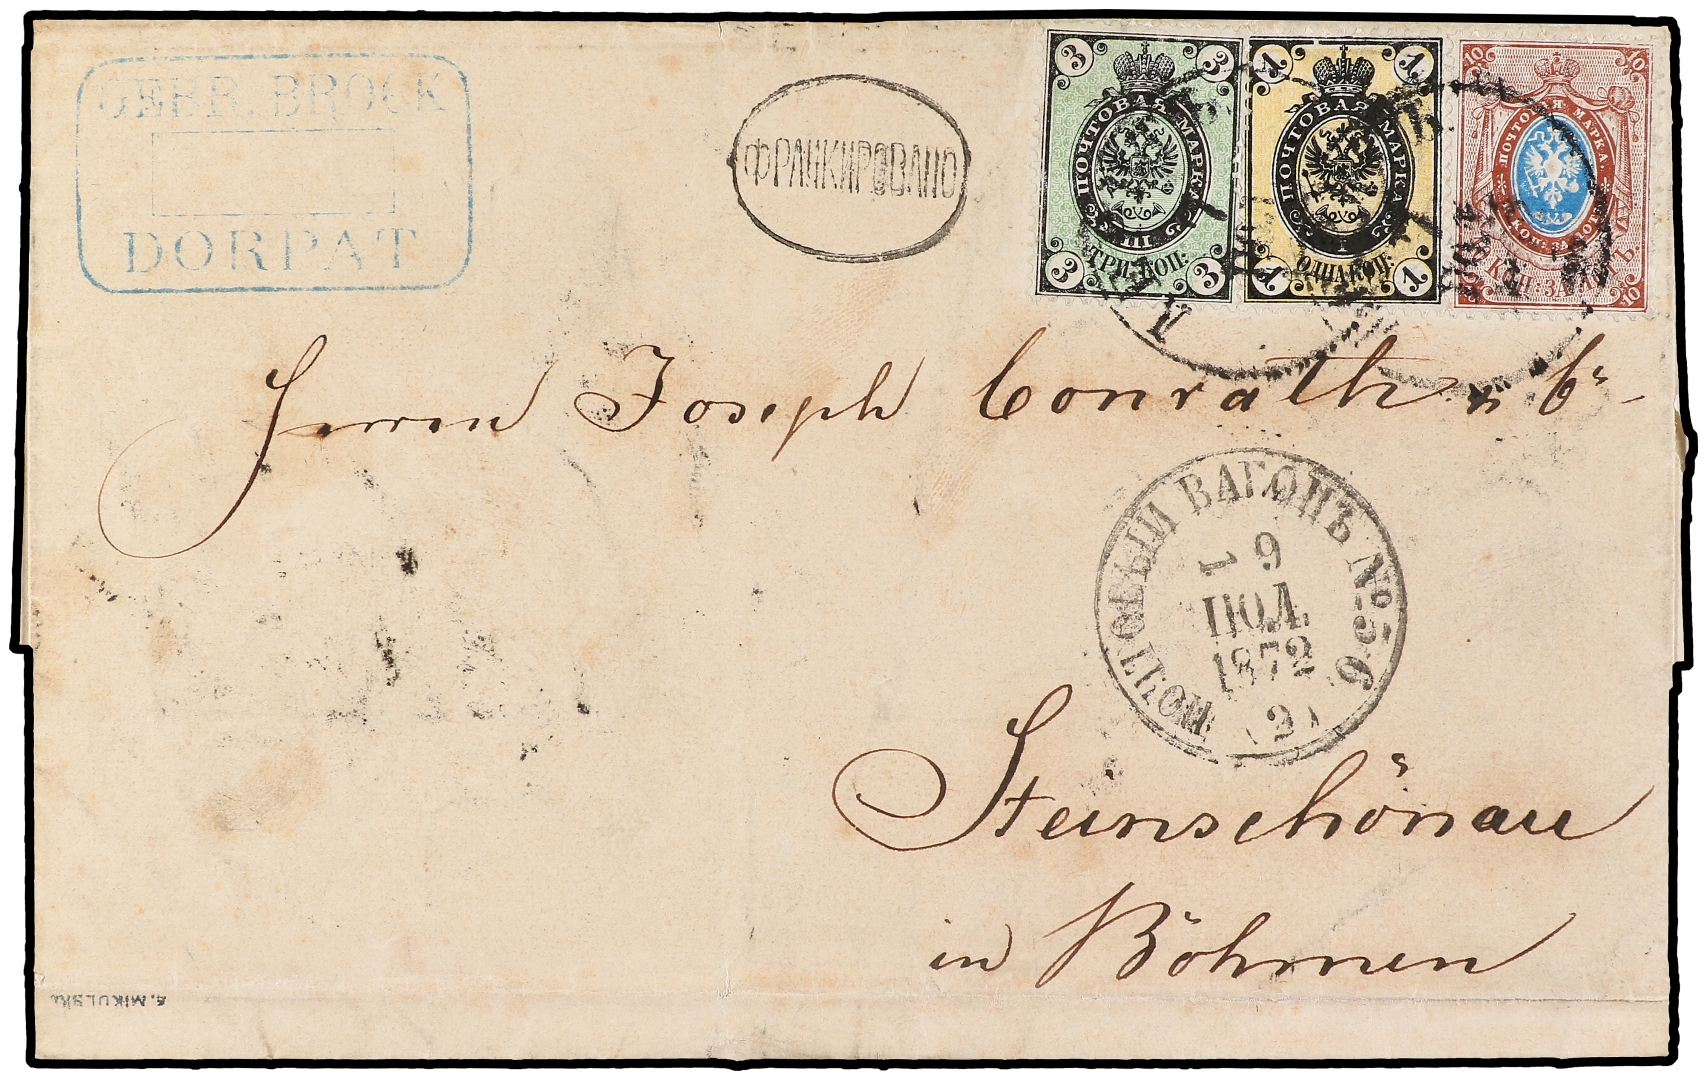 GEBR. BROCK
DORPAT
ФРАНКИРОВАНО
3 3
ПОЧТОВАЯ МАРКА
III
3 ТРИ КОП: 3
1 1
ПОЧТОВАЯ МАРКА
I
1 ОДНА КОП: 1
10 10
ПОЧТОВ: МАРКА.
КОП: ЗА ЛОТЪ
10 КОП: ЗА ЛОТЪ 10
Herrn Joseph Conrath & Co
ПОЧТОВЫЙ ВАГОНЪ № 5-6
19
ІЮЛ.
1872
(2)
Steinschönau
in Böhmen
MIKULSKI